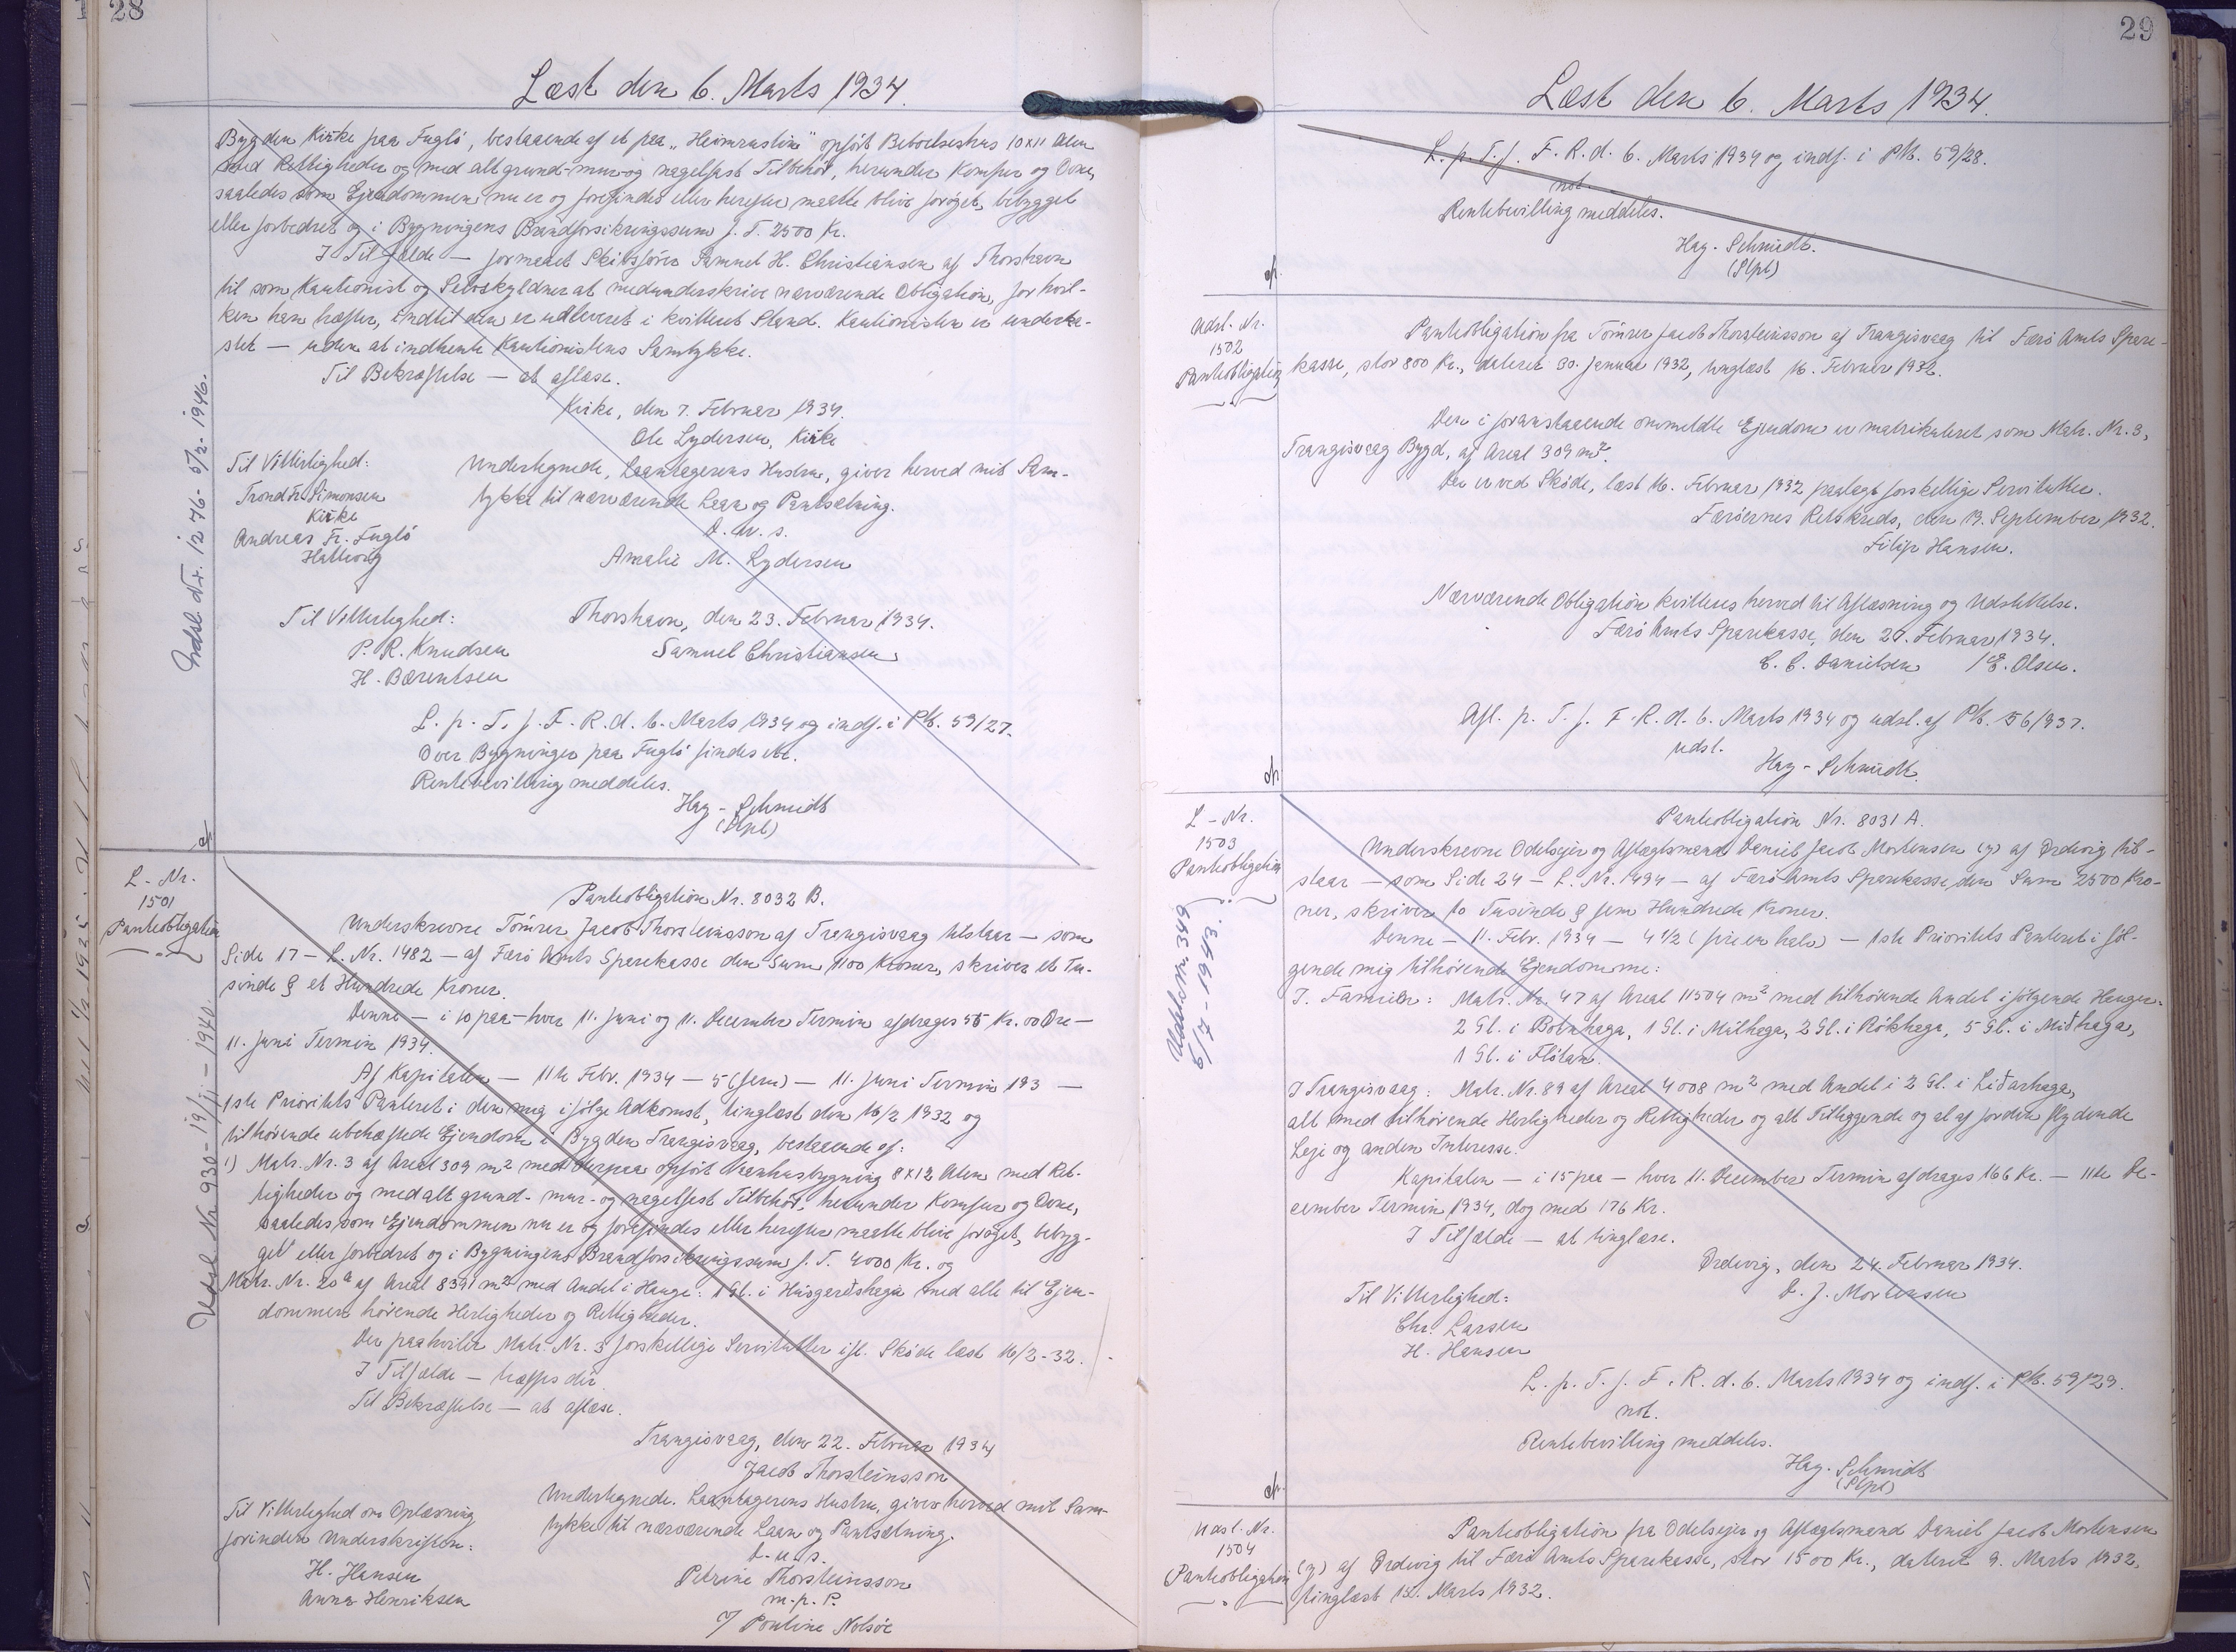 28
Læst den 6. Marts 1934.
Bygden Kirke paa Fuglö, bestaaende af et paa „Heimrustini" opført Beboelseshus 10x11 Alen
med Rettigheder og med alt grund-mur-og nagelfast Tilbehør, herunder Komfur og Ovne,
saaledes som Ejendommen nu er og forefindes eller herefter maatte blive forøget, bebygget
eller forbedret og i Bygningens Brandforsikringssum f. T. 2500 Kr.
I Tilfælde — formaaet Skibsfører Samuel H. Christiansen af Thorshavn
til som Kautionist og Selvskyldner at medunderskrive nærværende Obligation, for hvil-
ken han hæfter, indtil den er udleveret i kvitteret Stand. Kautionisten er underka-
stet — uden at indhente Kautionistens Samtykke.
Til Bekræftelse — at aflæse.
Kirke, den 7. Februar 1934.
Ole Lydersen, Kirke
Til Vitterlighed:
Trond Fr. Simonsen
Kirke
Andreas Fr. Fuglö
Hattevig
Undertegnede, Laantagerens Hustru, giver herved mit Sam-
tykke til nærværende Laan og Pantsætning.
D. u. s.
Amalie M. Lydersen
Til Vitterlighed:
P. R. Knudsen
H. Bærentsen
Thorshavn, den 23. Februar 1934.
Samuel Christiansen
L. p. T. f. F. R. d. 6. Marts 1934 og indf. i Pb. 59/27.
Over Bygninger paa Fuglö findes ikke.
Rentebevilling meddeles.
Hay-Schmidt
(Slpl)
Indsl. Nr. 1276 - 5/2- 1946.
L - Nr.
1501
Panteobligation
Udsl. Nr. 930 - 19/11 - 1940.
Panteobligation Nr. 8032 B.
Underskrevne Tømrer Jacob Thorsteinsson af Trangisvaag tilstaar — som
Side 17 - L. Nr. 1482 - af Færø Amts Sparekasse den Sum 1100 Kroner, skriver et Tu-
sinde & et Hundrede Kroner.
Denne — i 10 paa — hver 11. Juni og 11. December Termin afdrages 55 Kr. 00 Øre —
11. Juni Termin 1934.
Af Kapitalen — 11te Febr. 1934 — 5 (fem) — 11. Juni Termin 193 —
1ste Prioritets Panteret i den mig ifølge Adkomst, tinglæst den 16/2 1932 og
tilhørende ubehæftede Ejendom i Bygden Trangisvaag, bestaaende af:
1) Matr. Nr. 3 af Areal 309 m² med derpaa opført Vaanhusbygning 8x12 Alen med Ret-
tigheder og med alt grund- mur- og nagelfast Tilbehør, herunder Komfur og Ovne,
saaledes som Ejendommen nu er og forefindes eller herefter maatte blive forøget, bebyg-
get eller forbedret og i Bygningens Brandforsikringssum f. T. 4000 Kr. og
Matr. Nr. 20a af Areal 8391 m² med Andel i Hauge: 1 Gl. i Húsgarðshaga med alle til Ejen-
dommen hørende Herligheder og Rettigheder.
Der paahviler Matr. Nr. 3 forskellige Servitutter ifl. Skøde læst 16/2-32.
I Tilfælde — hæftes der
Til Bekræftelse — at aflæse.
Trangisvaag, den 22. Februar 1934
Jacob Thorsteinsson
Til Vitterlighed om Oplæsning
forinden Underskriften:
H. Hansen
Anna Henriksen
Undertegnede. Laantagerens Hustru, giver herved mit Sam-
tykke til nærværende Laan og Pantsætning.
D. u. s.
Petrine Thorsteinsson
m. p. P.
v/ Pouline Nolsöe
29
Læst den 6. Marts 1934.
L. p. T. f. F. R. d. 6. Marts 1934 og indf. i Pb. 59/28.
not.
Rentebevilling meddeles.
Hay-Schmidt.
(Slpl)
Udsl. Nr.
1502
Panteobligation
Panteobligation fra Tømrer Jacob Thorsteinsson af Trangisvaag til Færø Amts Spare-
kasse, stor 800 Kr., dateret 30. Januar 1932, tinglæst 16. Februar 1932.
Den i foranstaaende ommeldte Ejendom er matrikuleret som Matr. Nr. 3,
Trangisvaag Bygd, af Areal 309 m².
Der er ved Skøde, læst 16. Februar 1932 paalagt forskellige Servitutter.
Færøernes Retskreds, den 19. September 1932.
Filip Hansen.
Nærværende Obligation kvitteres herved til Aflæsning og Udslettelse.
Færø Amts Sparekasse, den 27. Februar 1934.
C. C. Danielsen / E. Olsen.
Afl. p. T. f. F. R. d. 6. Marts 1934 og udsl. af Pb. 56/937.
udsl.
Hay-Schmidt.
L - Nr.
1503
Panteobligation
Udsl. Nr. 349
6/7 - 1943.
Panteobligation Nr. 8031 A.
Underskrevne Odelsejer og Aftægtsmand Daniel Jacob Mortensen (y) af Ørdevig til-
staar — som Side 24 - L. Nr. 1494 - af Færø Amts Sparekasse den Sum 2500 Kro-
ner, skriver to Tusinde & fem Hundrede Kroner.
Denne — 11. Febr. 1934 — 4 1/2 (fire en halv) — 1ste Prioritets Panteret i føl-
gende mig tilhørende Ejendomme:
I. Famien: Matr. Nr. 47 af Areal 11504 m² med tilhørende Andel i følgende Hauger:
2 Gl. i Botnhaga, 1 Gl. i Múlhaga, 2 Gl. i Rókhaga, 5 Gl. i Miðhaga,
1 Gl. i Flötan.
I Trangisvaag: Matr. Nr. 89 af Areal 4008 m² med Andel i 2 Gl. i Liðarhaga,
alt med tilhørende Herligheder og Rettigheder og alt Tilliggende og al af Jorden flydende
Leje og anden Interesse.
Kapitalen — i 15 paa — hver 11. December Termin afdrages 166 Kr. — 11te De-
cember Termin 1934, dog med 176 Kr.
I Tilfælde — at tinglæse.
Ørdevig, den 24. Februar 1934.
D. J. Mortensen
Til Vitterlighed:
Chr. Larsen
H. Hansen
L. p. T. f. F. R. d. 6. Marts 1934 og indf. i Pb. 59/29.
not.
Rentebevilling meddeles.
Hay-Schmidt
(Slpl)
Udsl. Nr.
1504
Panteobligation
Panteobligation fra Odelsejer og Aftægtsmand Daniel Jacob Mortensen
(y) af Ørdevig til Færø Amts Sparekasse, stor 1500 Kr., dateret 9. Marts 1932,
tinglæst 15. Marts 1932.